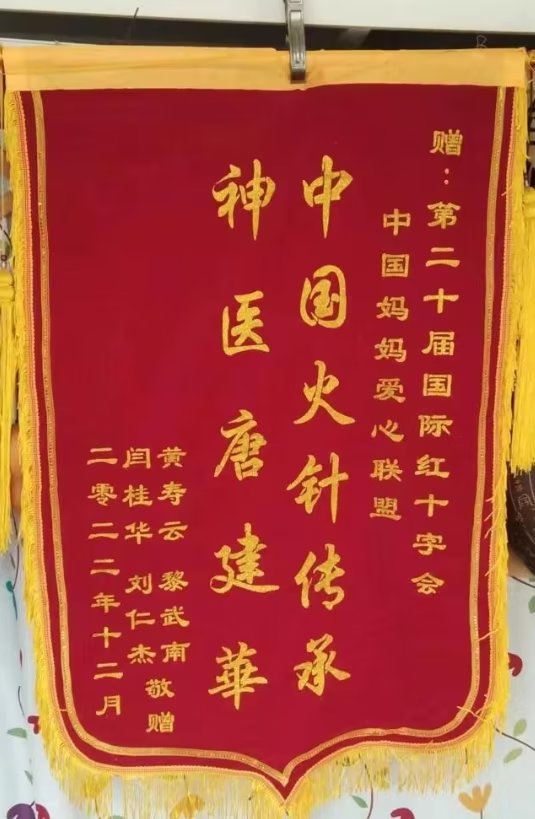 赠：第二十届国际红十字会
中国妈妈爱心联盟
中国火针传承
神医唐建華
黄寿云 黎武南 敬赠
闫桂华 刘仁杰
二零二二年十二月